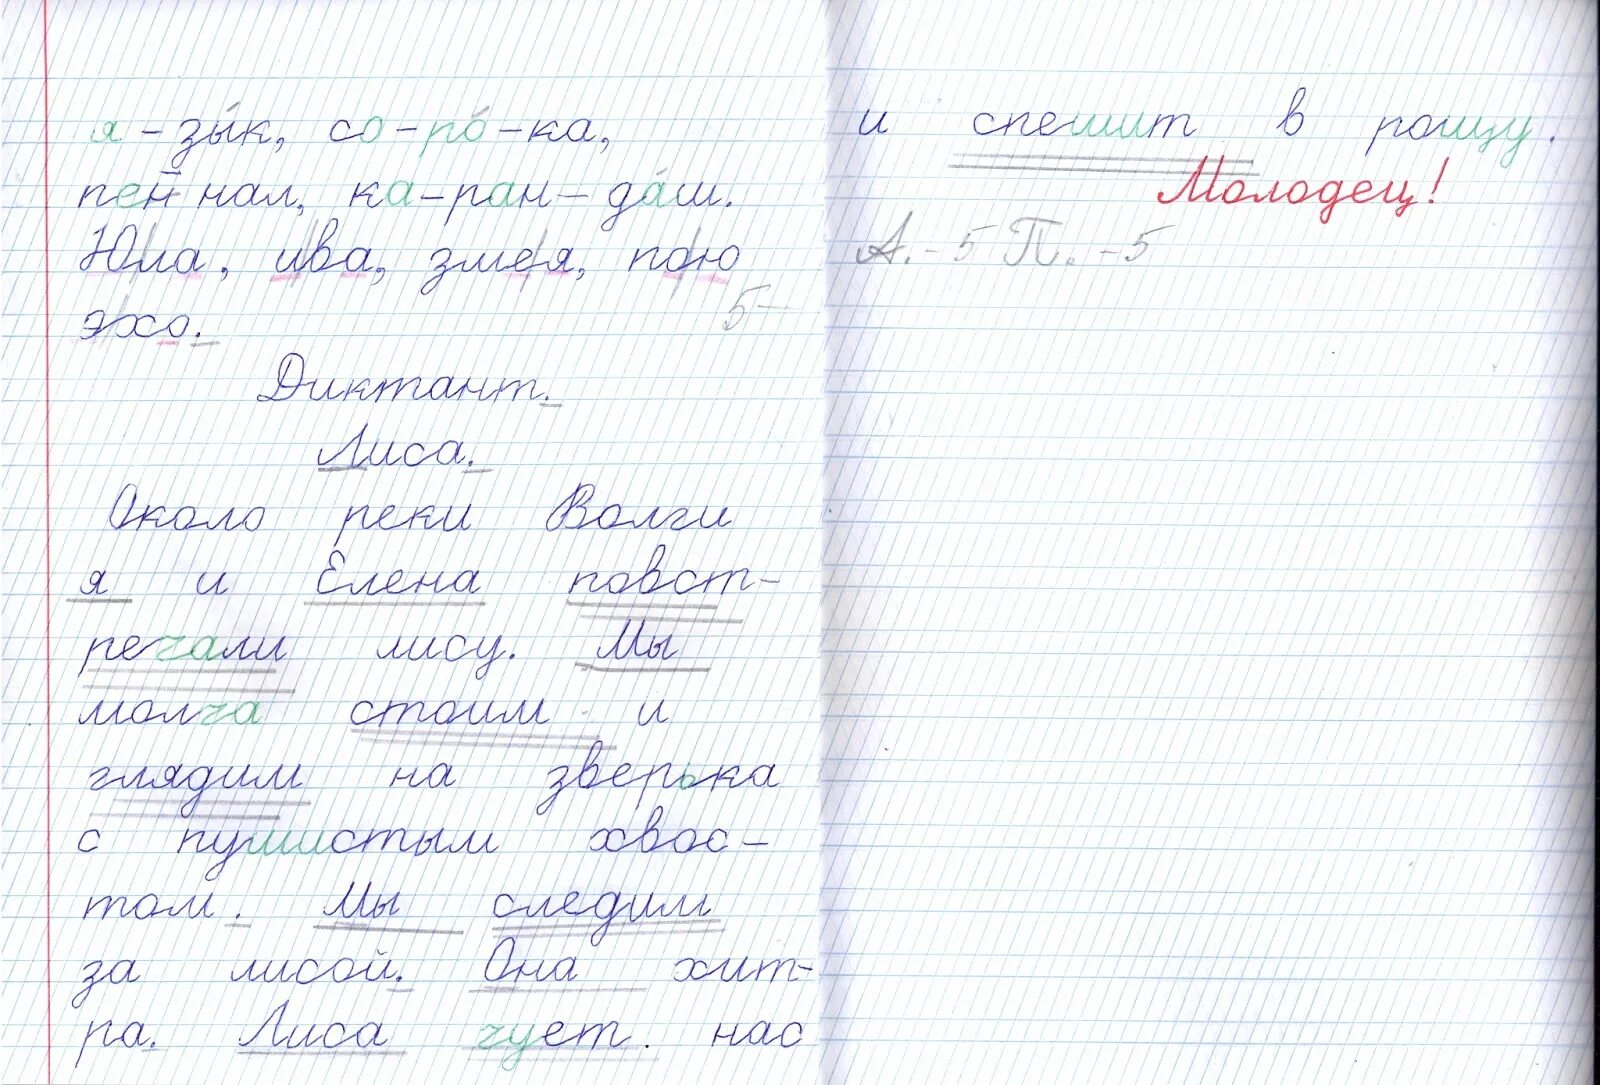 я - зы́к, со-ро́-ка,
пенал, ка-ран-да́ш.
Юла, ива, змея, пою
эхо.
5-
Диктант.
Лиса.
Около реки Волги
я и Елена повст-
речали лису. Мы
молча стоим и
глядим на зверька
с пушистым хвос-
том. Мы следим
за лисой. Она хит-
ра. Лиса чует нас
и спешит в рощу.
Молодец!
А. - 5 П. - 5